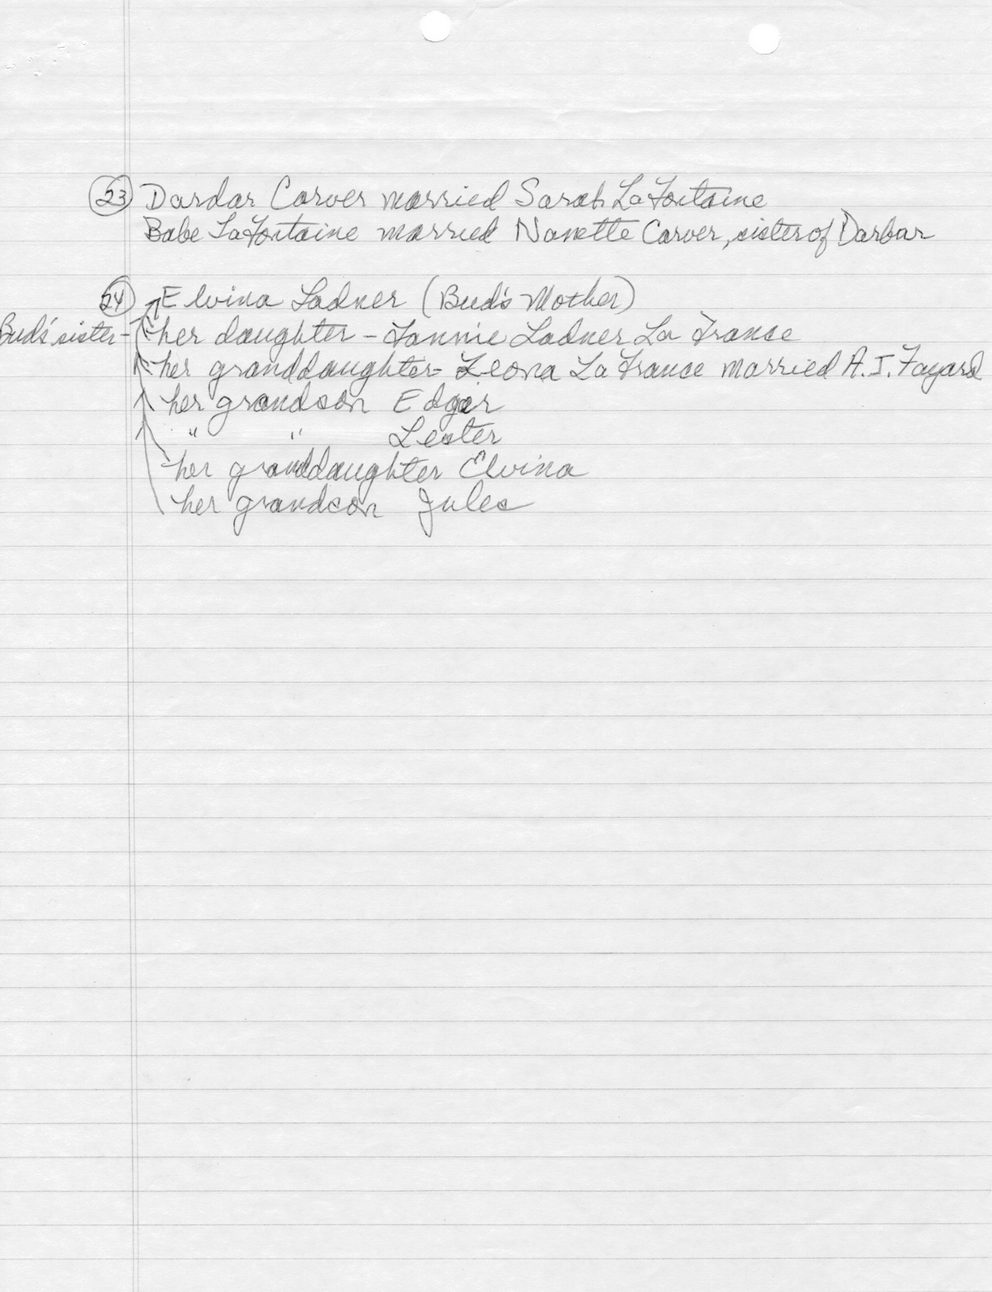 23 Dardar Carver married Sarah La Fontaine
Babe La Fontaine married Nanette Carver, sister of Darbar
24 Elvina Ladner (Bud's Mother)
Bud's sister - her daughter - Fannie Ladner La France
her granddaughter - Leona La France married A.J. Fayard
her grandson Edgar
" " Lester
her granddaughter Elvina
her grandson Jules